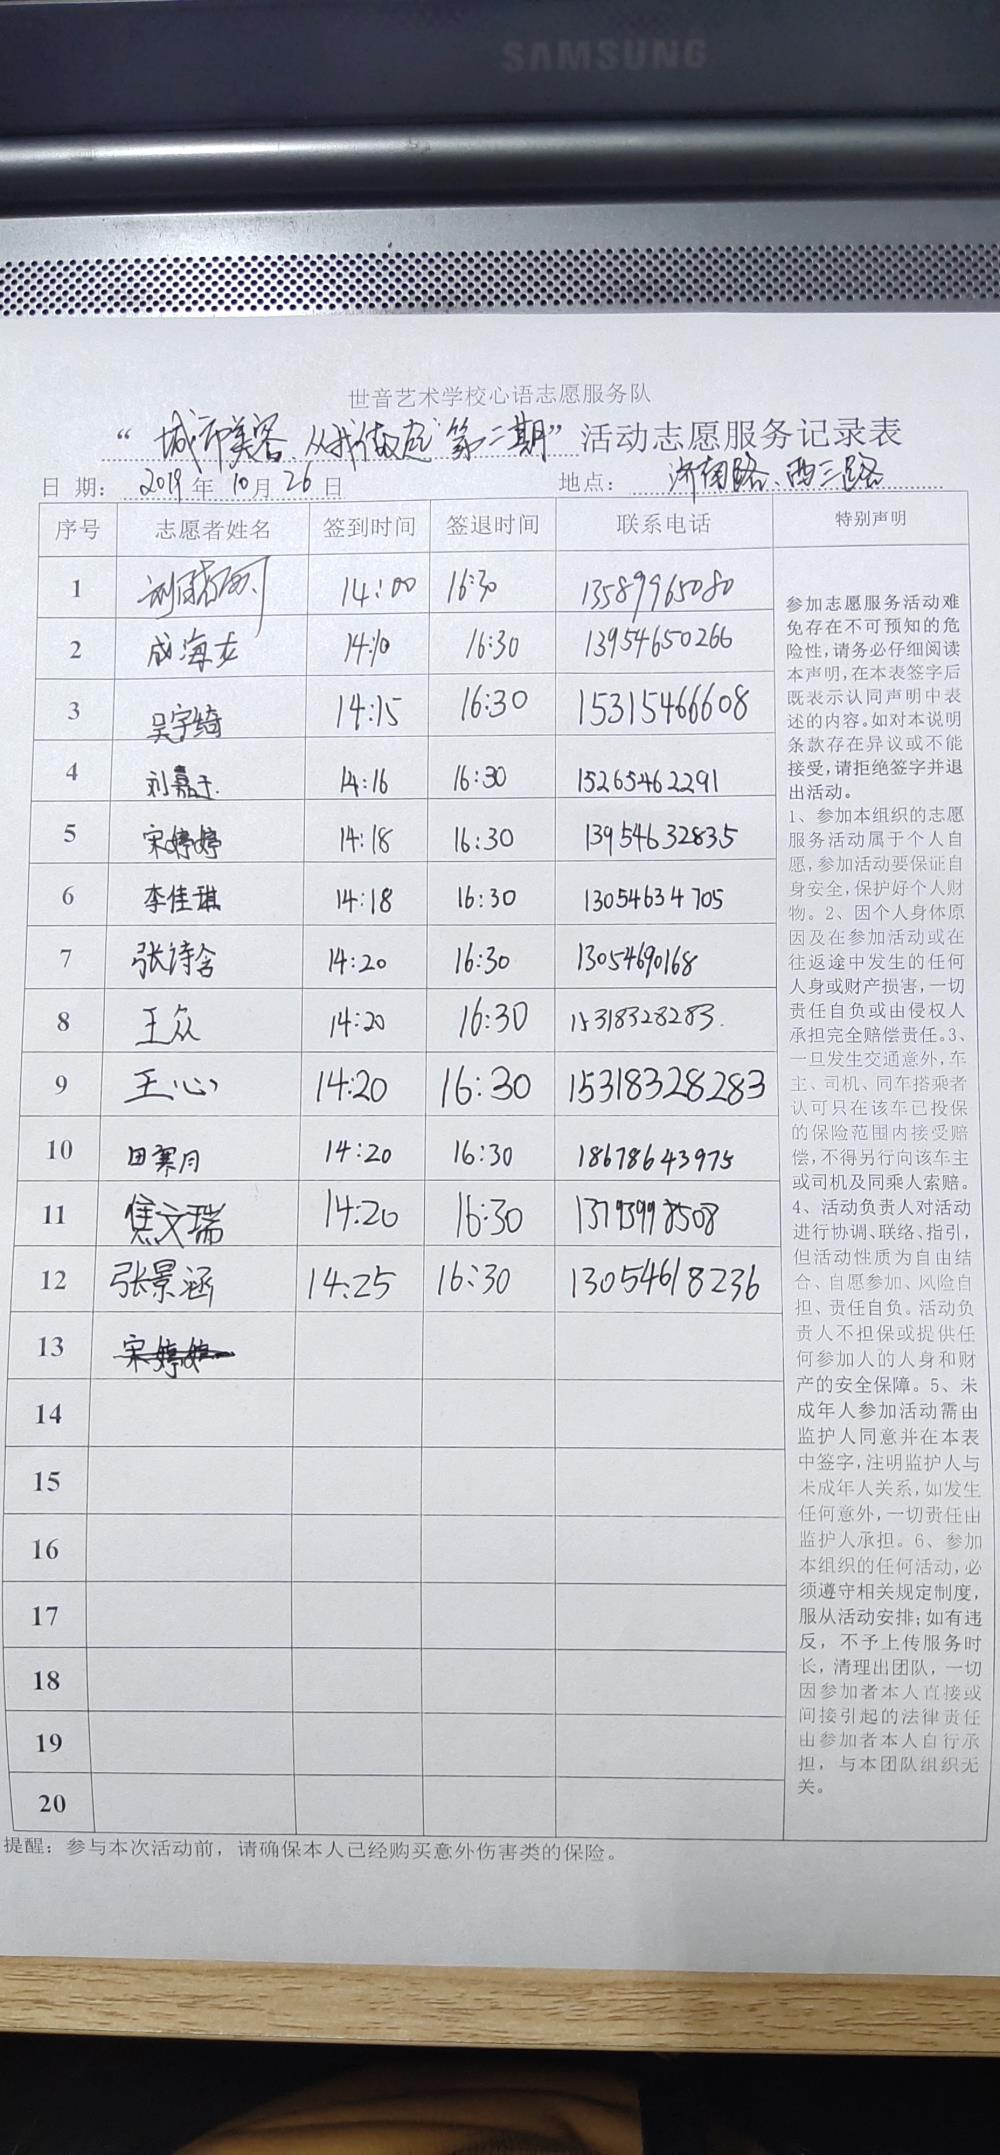 SAMSUNG
世音艺术学校心语志愿服务队
“城市美容、从我做起”第二期”活动志愿服务记录表
日 期：2019年10月26日 地点：济南路、西三路
序号 志愿者姓名 签到时间 签退时间 联系电话 特别声明
1 14:00 16:30 13589965080
2 成海 14:10 16:30 13954650266
3 吴宇绮 14:15 16:30 15315466608
4 刘嘉于 14:16 16:30 15265462291
5 宋婷婷 14:18 16:30 13954632835
6 李佳琪 14:18 16:30 13054634705
7 张诗含 14:20 16:30 13054690168
8 王众 14:20 16:30 15318328283.
9 王心 14:20 16:30 15318328283
10 田寒月 14:20 16:30 18678643975
11 焦文瑞 14:20 16:30 13793998508
12 张景涵 14:25 16:30 13054618236
13 宋婷婷
14
15
16
17
18
19
20
参加志愿服务活动难
免存在不可预知的危
险性，请务必仔细阅读
本声明，在本表签字后
既表示认同声明中表
述的内容。如对本说明
条款存在异议或不能
接受，请拒绝签字并退
出活动。
1、参加本组织的志愿
服务活动属于个人自
愿，参加活动要保证自
身安全，保护好个人财
物。2、因个人身体原
因及在参加活动或在
往返途中发生的任何
人身或财产损害，一切
责任自负或由侵权人
承担完全赔偿责任。3、
一旦发生交通意外，车
主、司机、同车搭乘者
认可只在该车已投保
的保险范围内接受赔
偿，不得另行向该车主
或司机及同乘人索赔。
4、活动负责人对活动
进行协调、联络、指引，
但活动性质为自由结
合、自愿参加、风险自
担、责任自负。活动负
责人不担保或提供任
何参加人的人身和财
产的安全保障。5、未
成年人参加活动需由
监护人同意并在本表
中签字，注明监护人与
未成年人关系，如发生
任何意外，一切责任由
监护人承担。6、参加
本组织的任何活动，必
须遵守相关规定制度，
服从活动安排；如有违
反，不予上传服务时
长，清理出团队，一切
因参加者本人直接或
间接引起的法律责任
由参加者本人自行承
担，与本团队组织无
关。
提醒：参与本次活动前，请确保本人已经购买意外伤害类的保险。